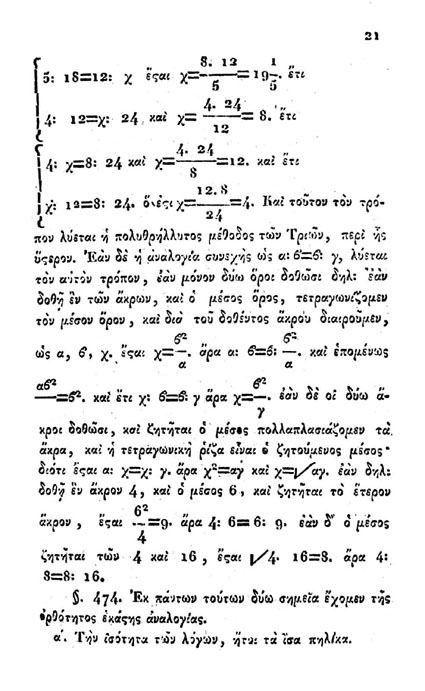 21
5: 18=12: χ ἔςαι χ= 8. 12 / 5 =19 1/5. ἔτι
4: 12=χ: 24 καὶ χ= 4. 24 / 12 = 8. ἔτι
4: χ=8: 24 καὶ χ= 4. 24 / 8 =12. καὶ ἔτι
χ: 12=8: 24. ὅ ἐςι χ= 12. 8 / 24 =4. Καὶ τοῦτον τὸν τρό-
πον λύεται ἡ πολυθρήλλυτος μέθοδος τῶν Τριῶν, περὶ ἧς
ὕςερον. Ἐὰν δὲ ἡ ἀναλογία συνεχὴς ὡς α: ϐ=ϐ: γ, λύεται
τὸν αὐτὸν τρόπον, ἐὰν μόνον δύω ὅροι δοθῶσι δηλ: ἐὰν
δοθῇ ἓν τῶν ἄκρων, καὶ ὁ μέσος ὅρος, τετραγωνίζομεν
τὸν μέσον ὅρον, καὶ διὰ τοῦ δοθέντος ἄκρου διαιροῦμεν,
ὡς α, ϐ, χ. ἔςαι χ= ϐ² / α. ἄρα α: ϐ=ϐ: ϐ² / α. καὶ ἑπομένως
αϐ² / α =ϐ². καὶ ἔτι χ: ϐ=ϐ: γ ἄρα χ= ϐ² / γ. ἐὰν δὲ οἱ δύω ἄ-
κροι δοθῶσι, καὶ ζητῆται ὁ μέσος πολλαπλασιάζομεν τὰ
ἄκρα, καὶ ἡ τετραγωνικὴ ῥίζα εἶναι ὁ ζητούμενος μέσος·
διότι ἔςαι α: χ=χ: γ. ἄρα χ²=αγ καὶ χ=√αγ. ἐὰν δηλ:
δοθῇ ἓν ἄκρον 4, καὶ ὁ μέσος 6, καὶ ζητῆται τὸ ἕτερον
ἄκρον, ἔςαι 6² / 4 =9. ἄρα 4: 6=6: 9. ἐὰν δ' ὁ μέσος
ζητῆται τῶν 4 καὶ 16, ἔςαι √4. 16=8. ἄρα 4:
8=8: 16.
§. 474. Ἐκ πάντων τούτων δύω σημεῖα ἔχομεν τῆς
ὀρθότητος ἑκάςης ἀναλογίας.
α΄. Τὴν ἰσότητα τῶν λόγων, ἤτοι τὰ ἴσα πηλίκα.